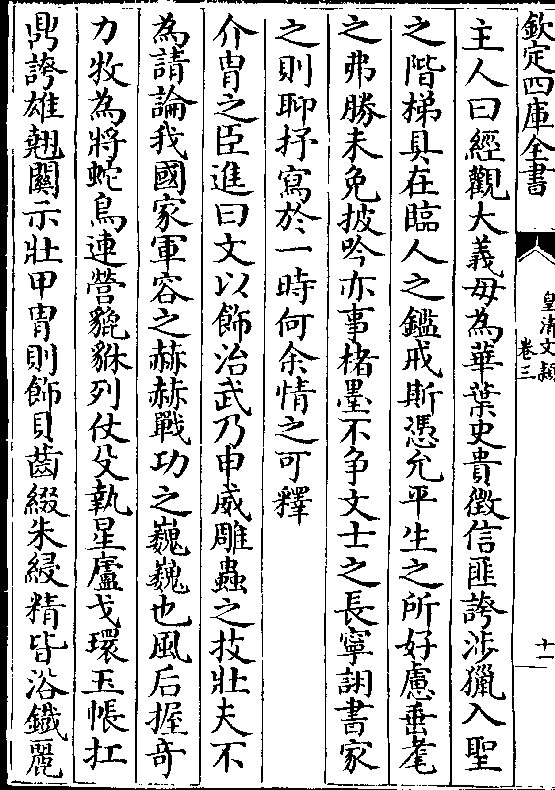 欽定四庫全書
皇清文穎
卷三
十一
主人曰經觀大義毋為華葉史貴徵信匪誇涉獵入聖
之階梯具在臨人之鑑戒斯憑允平生之所好慮垂耄
之弗勝未免披吟亦事楮墨不争文士之長寧詡書家
之則聊抒寫於一時何余情之可釋
介胄之臣進曰文以飾治武乃申威雕蟲之技壯夫不
為請論我國家軍容之赫赫戰功之巍巍也風后握竒
力牧為將蛇鳥連營貔貅列仗殳執星廬戈環玉帳扛
鼎誇雄翹關示壯甲胄則飾貝齒綴朱綅精皆浴鐵麗